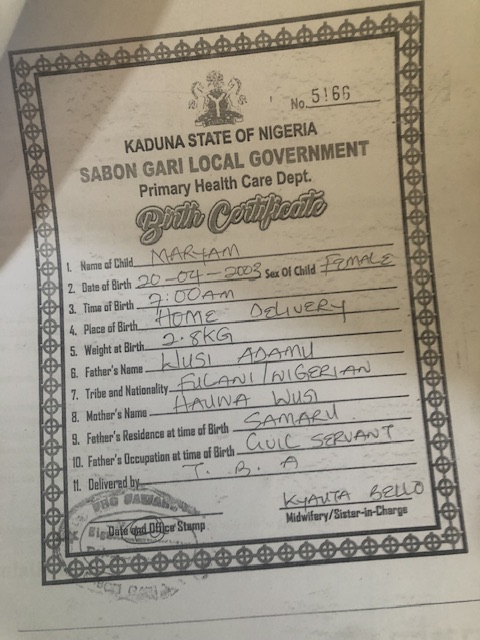 No. 5166
KADUNA STATE OF NIGERIA
SABON GARI LOCAL GOVERNMENT
Primary Health Care Dept.
Birth Certificate
1. Name of Child MARYAM
2. Date of Birth 20-04-2003 Sex Of Child FEMALE
3. Time of Birth 2:00AM
4. Place of Birth HOME DELIVERY
5. Weight at Birth 2.8KG
6. Father's Name WUSI ADAMU
7. Tribe and Nationality FULANI/NIGERIAN
8. Mother's Name HAUWA WUSI
9. Father's Residence at time of Birth SAMARU
10. Father's Occupation at time of Birth CIVIL SERVANT
11. Delivered by T. B. A
KYAUTA BELLO
Date and Office Stamp Midwifery/Sister-in-Charge